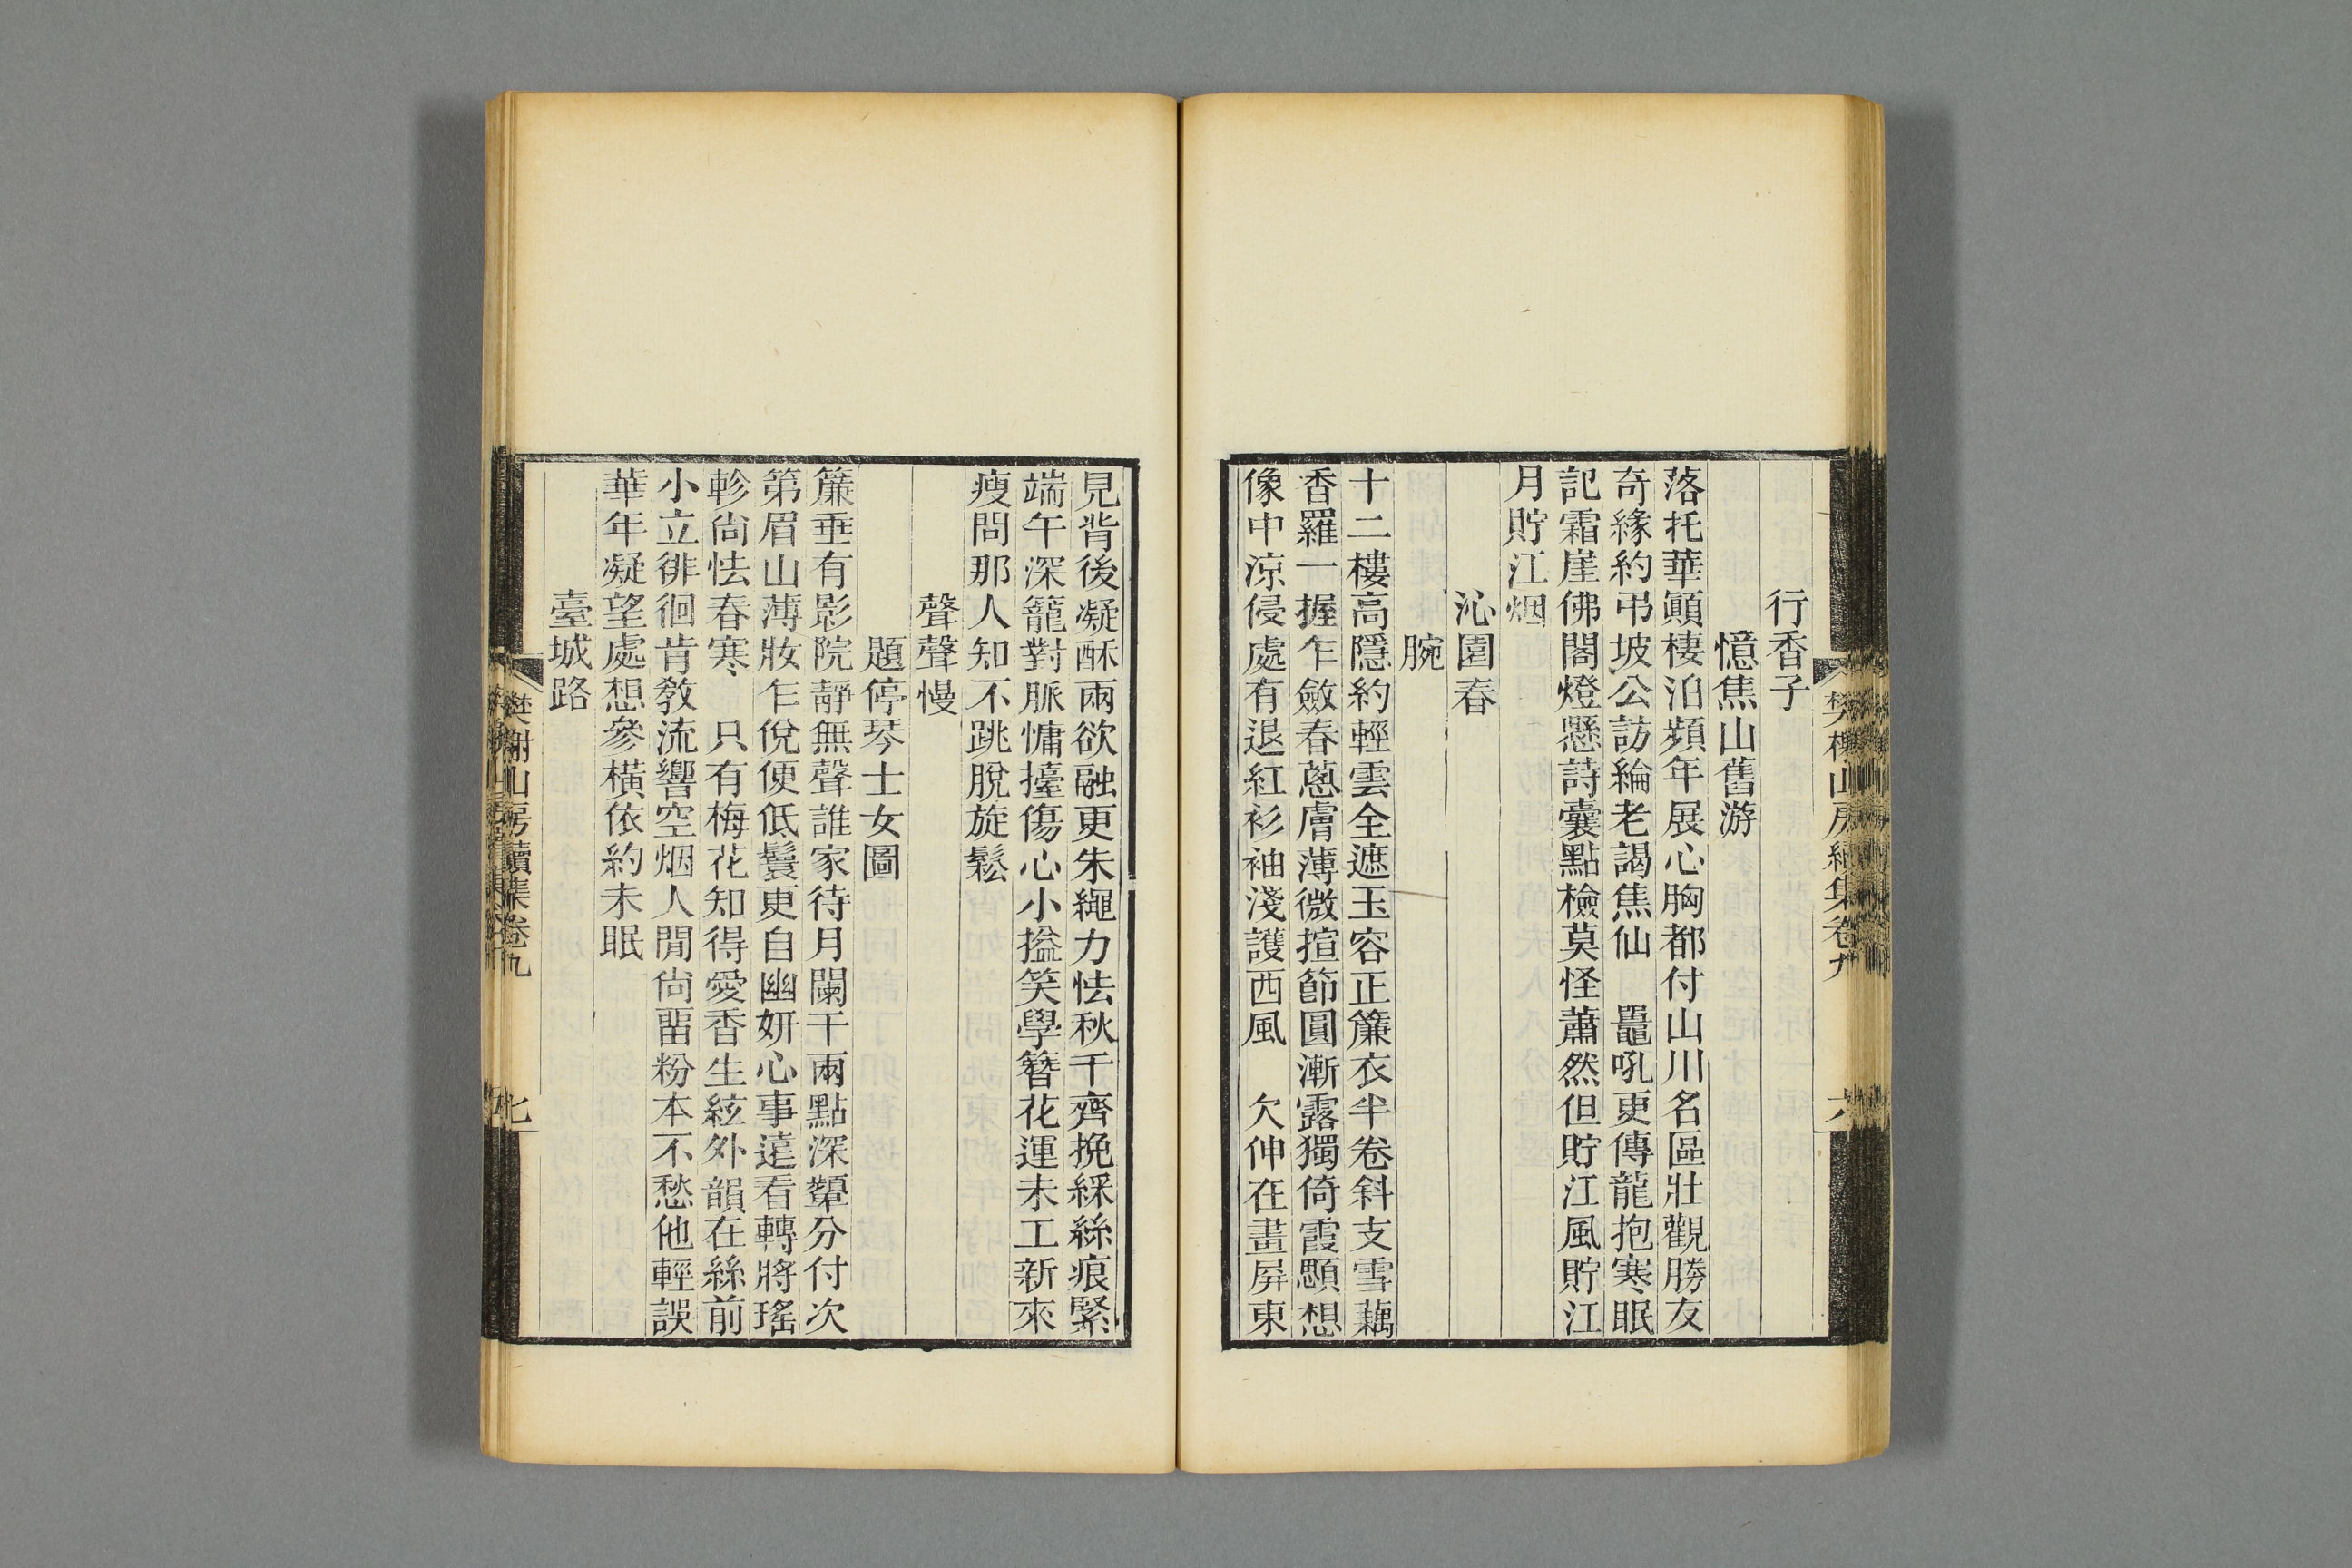 行香子
憶焦山舊游
落托華顚棲泊頻年展心胸都付山川名區壯觀勝友
奇緣約弔坡公訪綸老謁焦仙　鼉吼更傳龍抱寒眠
記霜崖佛閣燈懸詩囊點檢莫怪蕭然但貯江風貯江
月貯江烟
沁園春
腕
十二樓高隱約輕雲全遮玉容正簾衣半卷斜支雪藕
香羅一握乍斂春蔥膚薄微揎節圓漸露獨倚霞顋想
像中涼侵處有退紅衫袖淺護西風　欠伸在畫屏東
樊榭山房續集卷九
六
見背後凝酥兩欲融更朱繩力怯秋千齊挽綵絲痕緊
端午深籠對脈慵擡傷心小搤笑學簪花運未工新來
瘦問那人知不跳脫旋鬆
聲聲慢
題停琴士女圖
簾垂有影院靜無聲誰家待月闌干兩點深顰分付次
第眉山薄妝乍倪便低鬟更自幽妍心事遠看轉將瑤
軫尙怯春寒　只有梅花知得愛香生絃外韻在絲前
小立徘徊肯敎流響空烟人閒尙畱粉本不愁他輕誤
華年凝望處想參橫依約未眠
臺城路
樊榭山房續集卷九
七